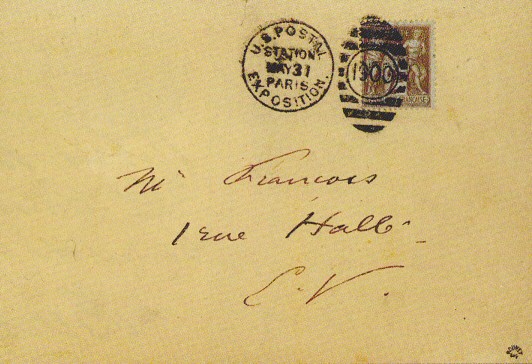 U.S. POSTAL
STATION
MAY 31
PARIS
EXPOSITION.
1900
Mr François
1 rue Halle
E.V.